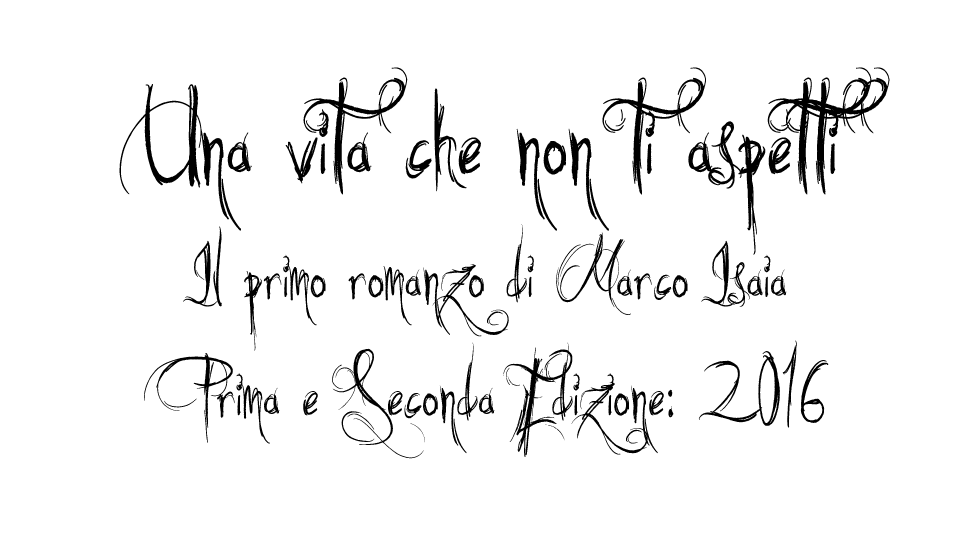 Una vita che non ti aspetti
Il primo romanzo di Marco Isaia
Prima e Seconda Edizione: 2016